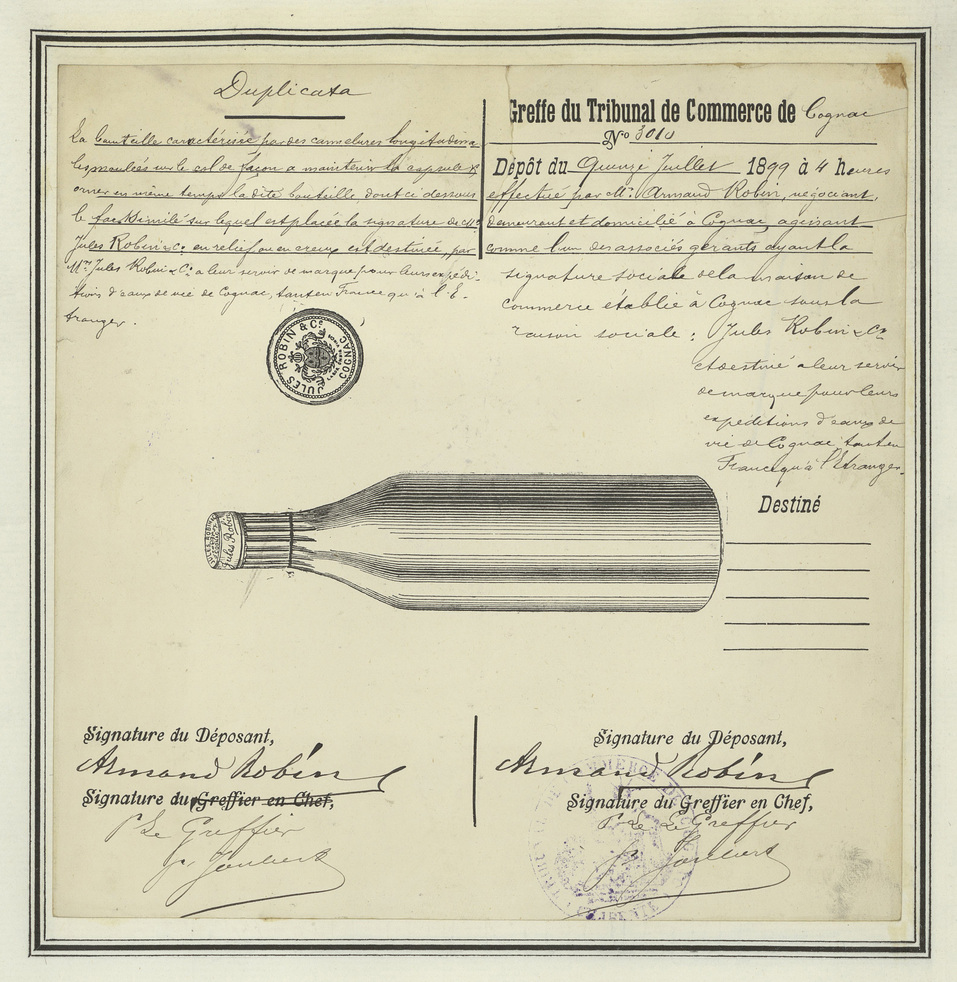 Duplicata
La bouteille caractérisée par des cannelures longitudina
les moulées sur le col de façon a maintenir la capsule &
orner en même temps la dite bouteille, dont ci dessous
le fac-similé sur lequel est placée la signature de Mrs
Jules Robin & Co. en relief ou en creux est destinée, par
Mrs Jules Robin & Co. a leur servir de marque pour leurs expédi-
tions d'eaux de vie de Cognac, tant en France qu'à l'E-
tranger.
JULES ROBIN & Co
COGNAC
Greffe du Tribunal de Commerce de Cognac
No 3010
Dépôt du Quinze Juillet 1899 à 4 heures
effectué par Mr. Armand Robin, négociant,
demeurant et domicilié à Cognac, agissant
comme l'un des associés gérants ayant la
signature sociale de la maison de
commerce établie à Cognac sous la
raison sociale : Jules Robin & Co
et destiné a leur servir
de marque pour leurs
expéditions d'eaux de
vie de Cognac tant en
France qu'à l'Etranger.
Destiné
JULES ROBIN
Jules Robin
Signature du Déposant,
Armand Robin
Signature du Greffier en Chef,
P. Le Greffier
Joubert
Signature du Déposant,
Armand Robin
Signature du Greffier en Chef,
P. Le Greffier
Joubert
COMMERCE DE
CHARENTE